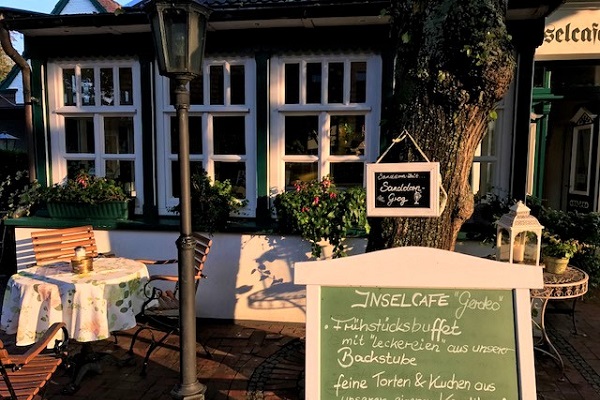 nselcafé
Sanddorn-
Grog
INSELCAFE "Gerdes"
• Frühstücksbuffet
mit "leckereien" aus unserer
Backstube
feine Torten & Kuchen aus
unserer